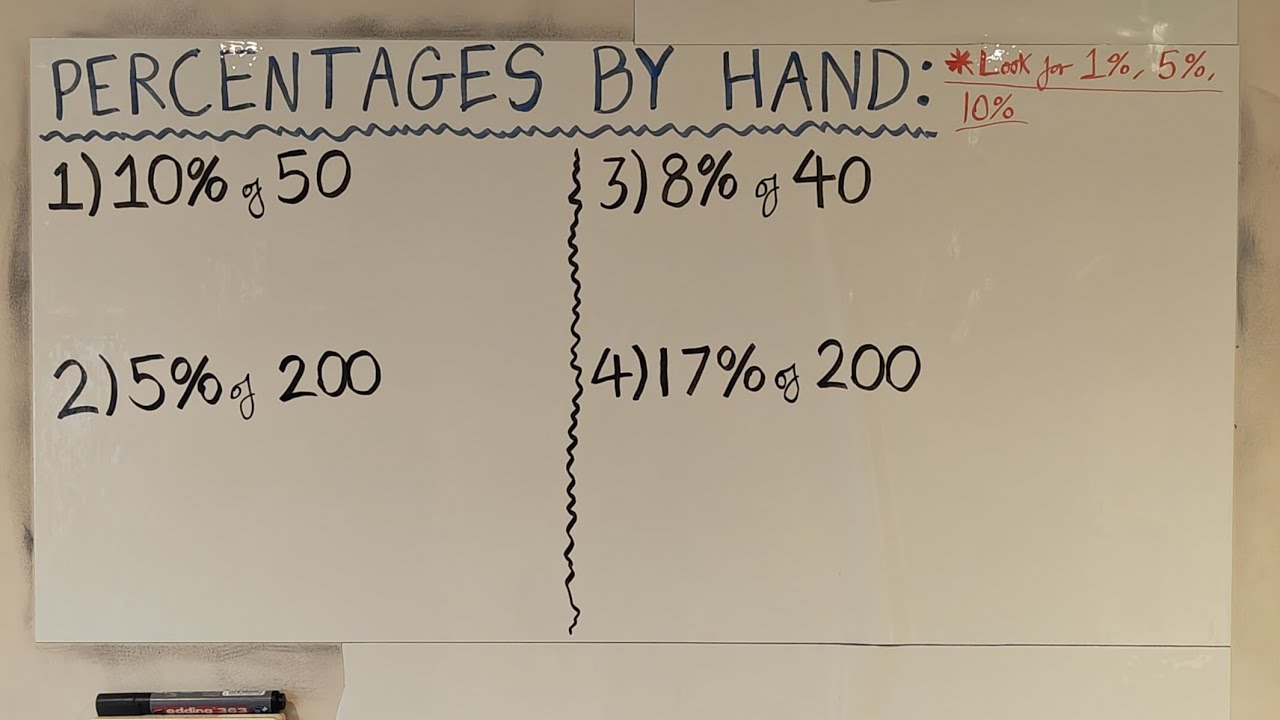 PERCENTAGES BY HAND:
*Look for 1%, 5%,
10%
1) 10% of 50
2) 5% of 200
3) 8% of 40
4) 17% of 200
edding 363